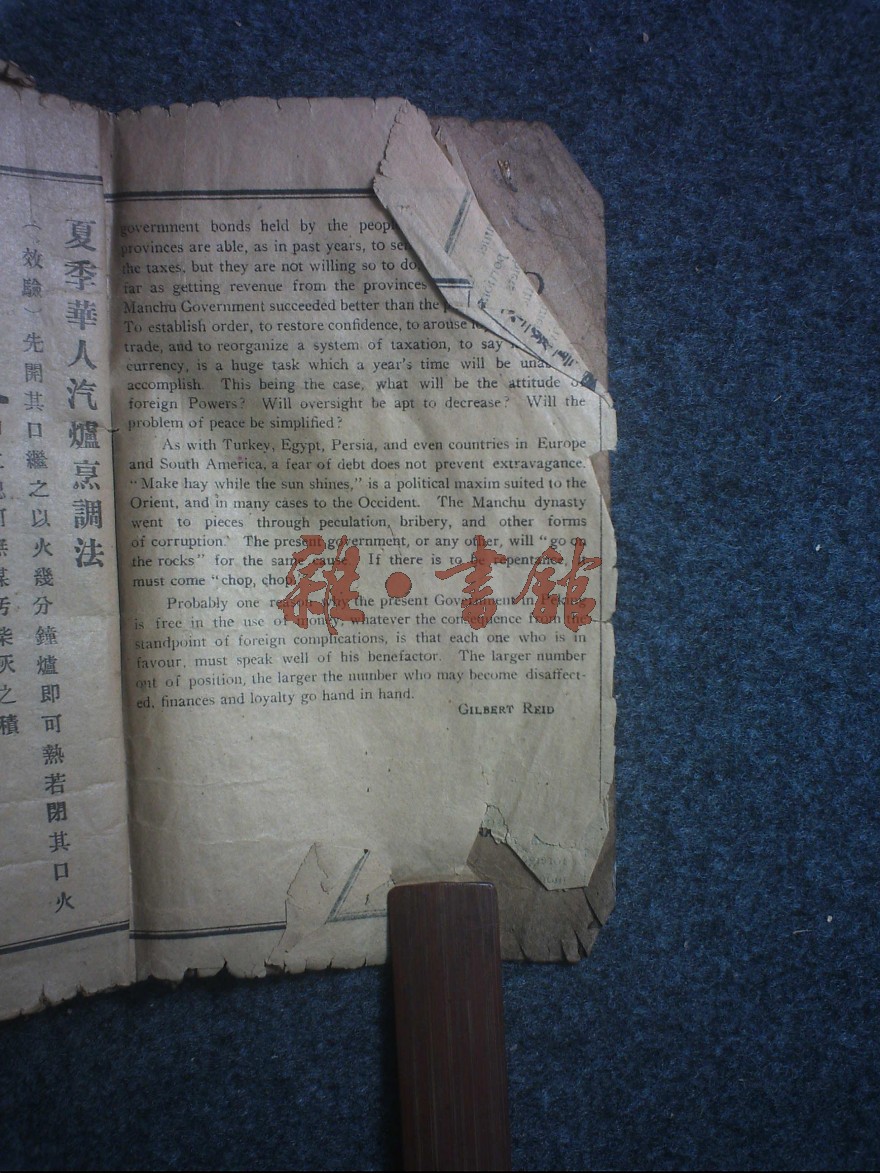 government bonds held by the
provinces are able, as in past years, to
the taxes, but they are not willing so to do
far as getting revenue from the provinces
Manchu Government succeeded better than the
To establish order, to restore confidence, to arouse
trade, and to reorganize a system of taxation, to say
currency, is a huge task which a year's time will be
accomplish. This being the case, what will be the attitude
foreign Powers? Will oversight be apt to decrease? Will the
problem of peace be simplified?
As with Turkey, Egypt, Persia, and even countries in Europe
and South America, a fear of debt does not prevent extravagance.
"Make hay while the sun shines," is a political maxim suited to the
Orient, and in many cases to the Occident. The Manchu dynasty
went to pieces through peculation, bribery, and other forms
of corruption. The present government, or any other, will "go on
the rocks" for the same cause. If there is to be repentance, it
must come "chop, chop
Probably one reason why the present Government in Peking
is free in the use of money, whatever the consequence from the
standpoint of foreign complications, is that each one who is in
favour, must speak well of his benefactor. The larger number
out of position, the larger the number who may become disaffect-
ed, finances and loyalty go hand in hand.
GILBERT REID
夏季華人汽爐烹調法
（效驗）先開其口繼之以火幾分鐘爐即可熱若閉其口火
雜·書館